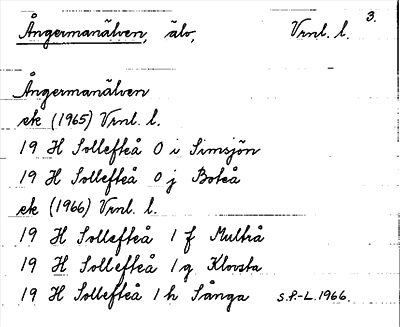 3.
Ångermanälven, älv, Vrnl. l.
Ångermanälven
ek (1965) Vrnl. l.
19 H Sollefteå 0 i Simsjön
19 H Sollefteå 0 j Boteå
ek (1966) Vrnl. l.
19 H Sollefteå 1 f Multrå
19 H Sollefteå 1 g Klovsta
19 H Sollefteå 1 h Sånga s.P.-L. 1966.